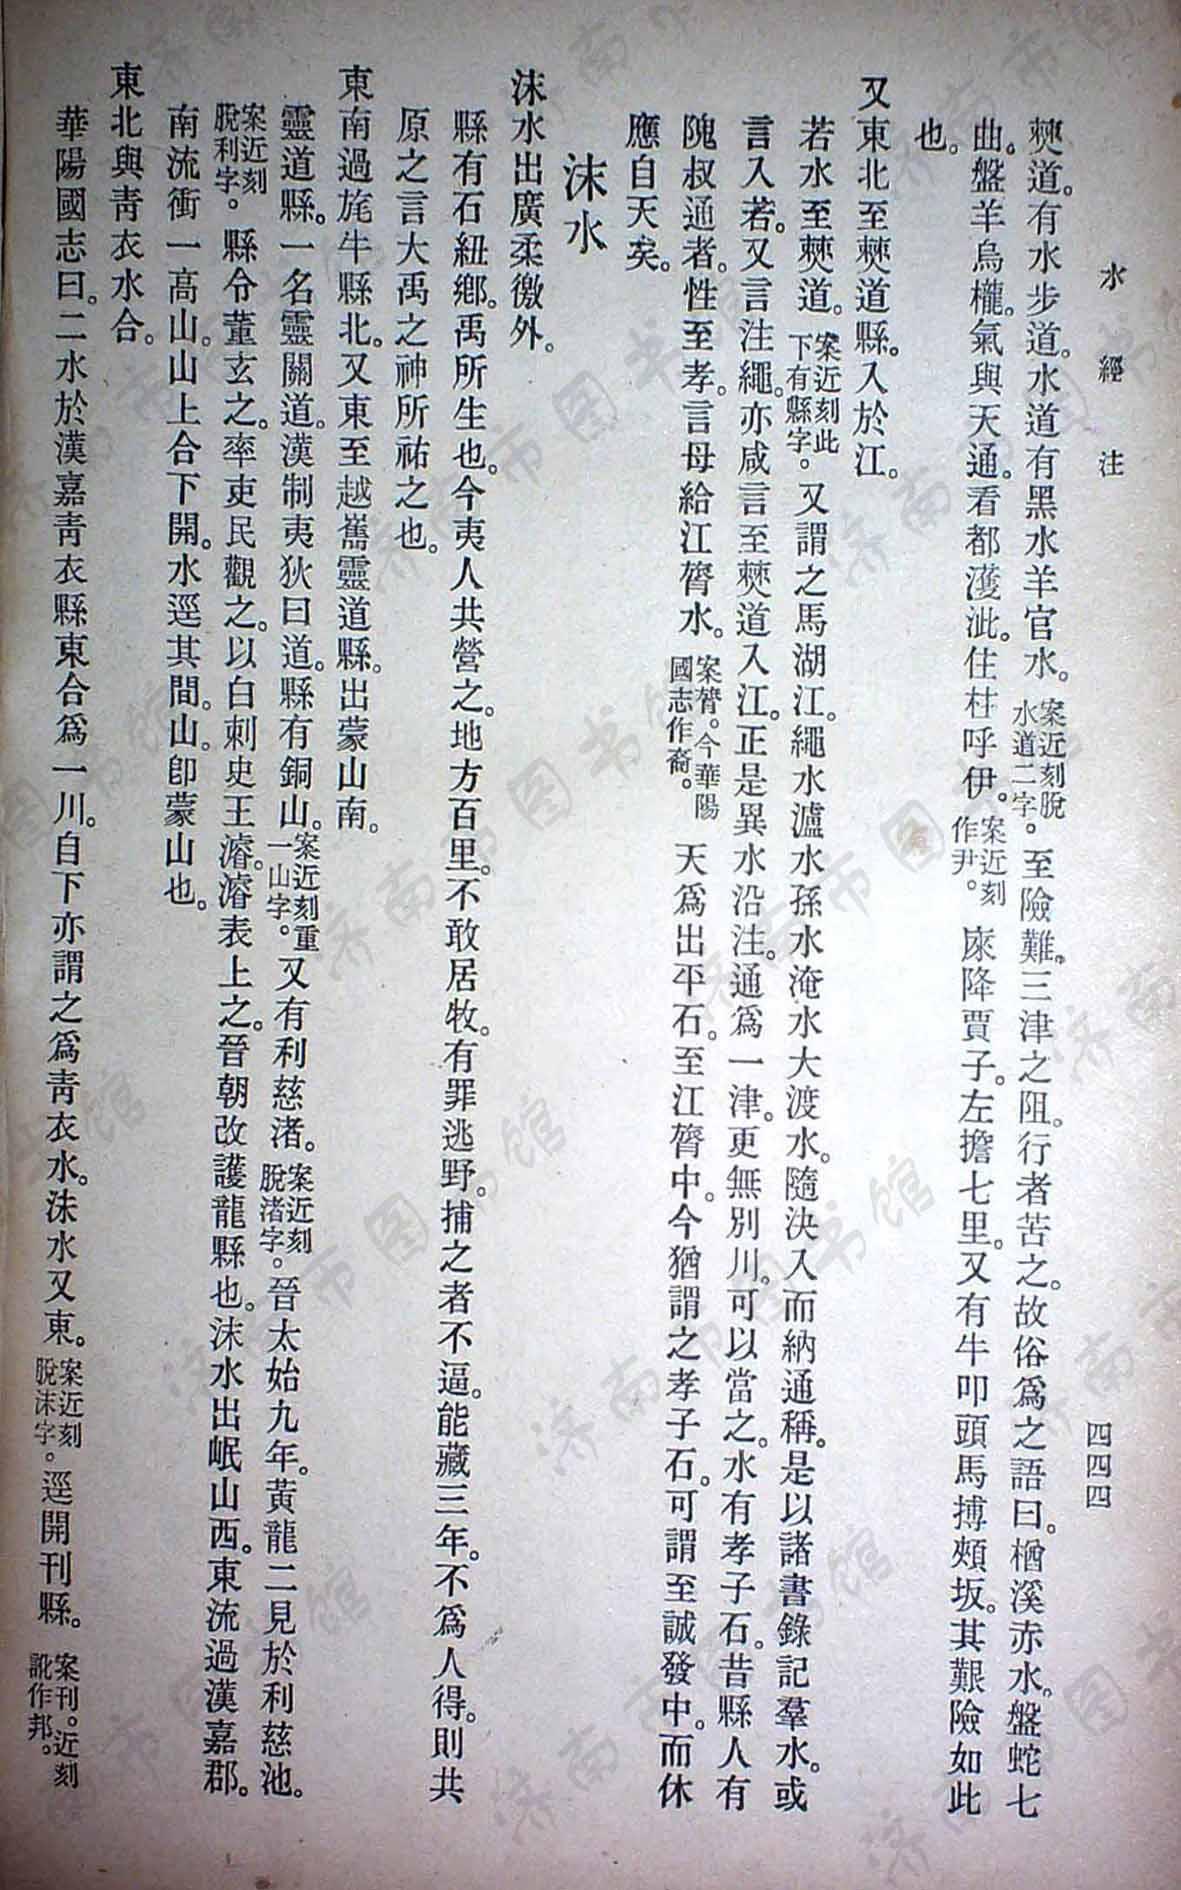 水經注
四四四
僰道。有水步道。水道有黑水羊官水。案近刻脫水道二字。至險難。三津之阻。行者苦之。故俗爲之語曰。楢溪赤水。盤蛇七
曲。盤羊烏櫳。氣與天通。看都濩泚。住柱呼伊。案近刻作尹。庲降賈子。左擔七里。又有牛叩頭馬搏頰坂。其艱險如此
也。
又東北至僰道縣。入於江。
若水至僰道。案近刻此下有縣字。又謂之馬湖江。繩水瀘水孫水淹水大渡水。隨決入而納通稱。是以諸書錄記羣水。或
言入若。又言注繩。亦咸言至僰道入江。正是異水沿注。通爲一津。更無別川。可以當之。水有孝子石。昔縣人有
隗叔通者。性至孝。言母給江膂水。案膂。今華陽國志作裔。天爲出平石。至江膂中。今猶謂之孝子石。可謂至誠發中。而休
應自天矣。
沫水
沫水出廣柔徼外。
縣有石紐鄉。禹所生也。今夷人共營之。地方百里。不敢居牧。有罪逃野。捕之者不逼。能藏三年。不爲人得。則共
原之言大禹之神所祐之也。
東南過旄牛縣北。又東至越巂靈道縣。出蒙山南。
靈道縣。一名靈關道。漢制夷狄曰道。縣有銅山。案近刻重一山字。又有利慈渚。案近刻脫渚字。晉太始九年。黃龍二見於利慈池。
案近刻脫利字。縣令董玄之。率吏民觀之。以白刺史王濬。濬表上之。晉朝改護龍縣也。沫水出岷山西。東流過漢嘉郡。
南流衝一高山。山上合下開。水逕其間。山。卽蒙山也。
東北與青衣水合。
華陽國志曰。二水於漢嘉青衣縣東合爲一川。自下亦謂之爲青衣水。沫水又東。案近刻脫沫字。逕開刊縣。案刊。近刻訛作邦。
济南市图书馆